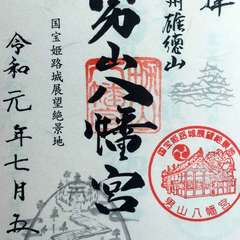 州雄徳山
男山八幡宮
国宝姫路城展望絶景地
令和元年七月五
国宝姫路城展望絶景地
男山八幡宮